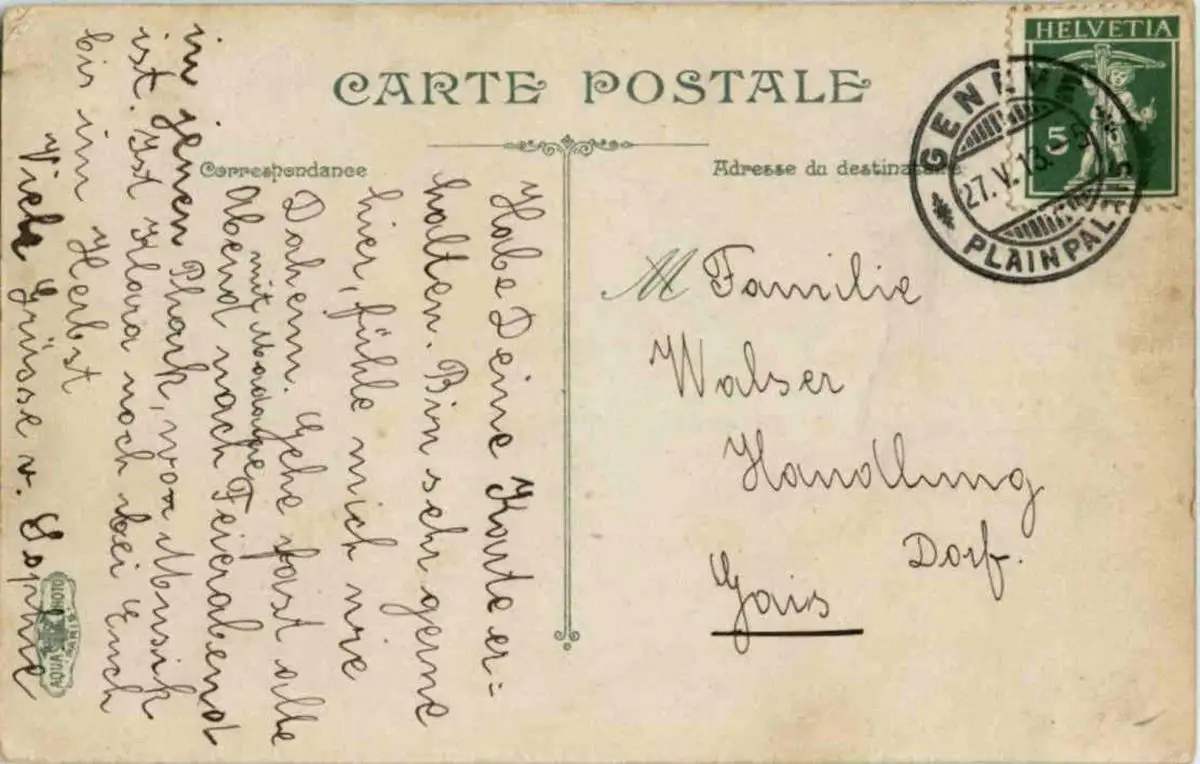 CARTE POSTALE
Correspondance
Adresse du destinataire
HELVETIA
5
GENÈVE
27.V.13.-5
PLAINPALAIS
M Familie
Walser
Handlung
Dorf.
Gais
Habe Deine Karte er=
halten. Bin sehr gerne
hier, fühle mich wie
Dahem. Gehe fast alle
mit Madame
Abend nach Feierabend
in jenen Phark, wo Musik
ist. Ist Klara noch bei Euch
bis im Herbst
Viele Grüsse v. Sophie